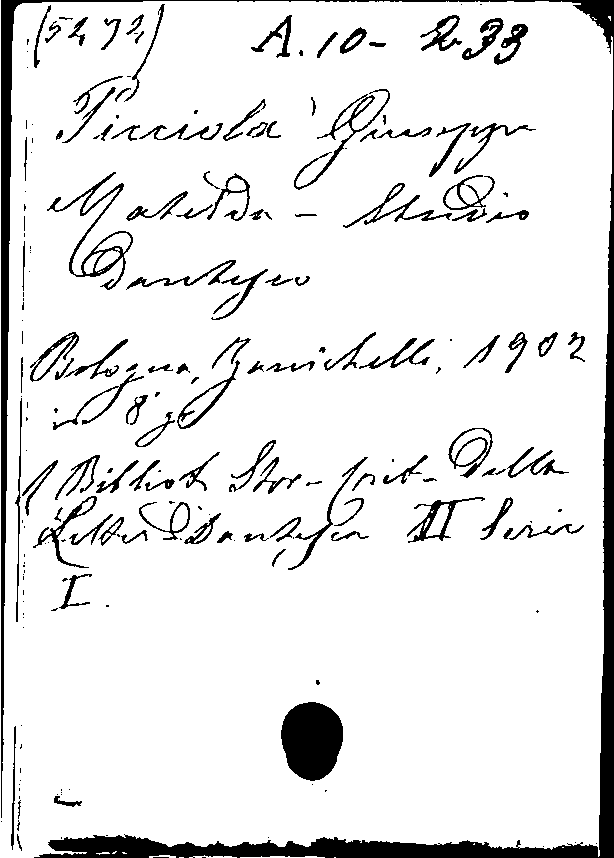 (5272) A. 10 - 233
Picciola Giuseppe
Matelda - Studio
Dantesco
Bologna, Zanichelli, 1902
in 8° gr
( Bibliot. Stor - crit - della
Letter. Dantesca II Serie
I.